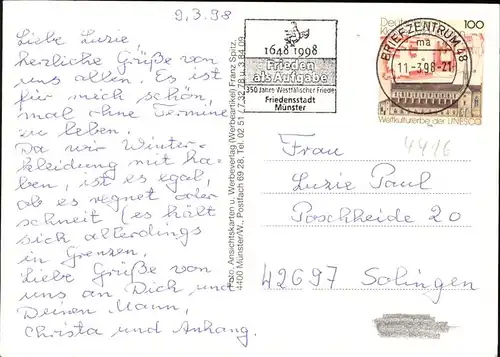 9.3.98
Liebe Luzie
herzliche Grüße von
uns allen. Es ist
für mich schön,
mal ohne Termine
zu leben.
Da wir Winter-
kleidung mit ha-
ben, ist es egal,
ob es regnet oder
schneit (es hält
sich allerdings
in Grenzen.
Liebe Grüße von
uns an Dich und
Deinen Mann,
Christa und Anhang.
Foto, Ansichtskarten u. Werbeverlag (Werbeartikel) Franz Spitz,
4400 Münster/W., Postfach 69 28, Tel. 02 51 / 7 32 78 u. 3 84 09
1648 1998
Frieden
als Aufgabe
350 Jahre Westfälischer Friede
Friedensstadt
Münster
BRIEFZENTRUM 48
ma
11-3.98-21
100
Weltkulturerbe der UNESCO
4416
Frau
Luzie Paul
Poschheide 20
42697 Solingen